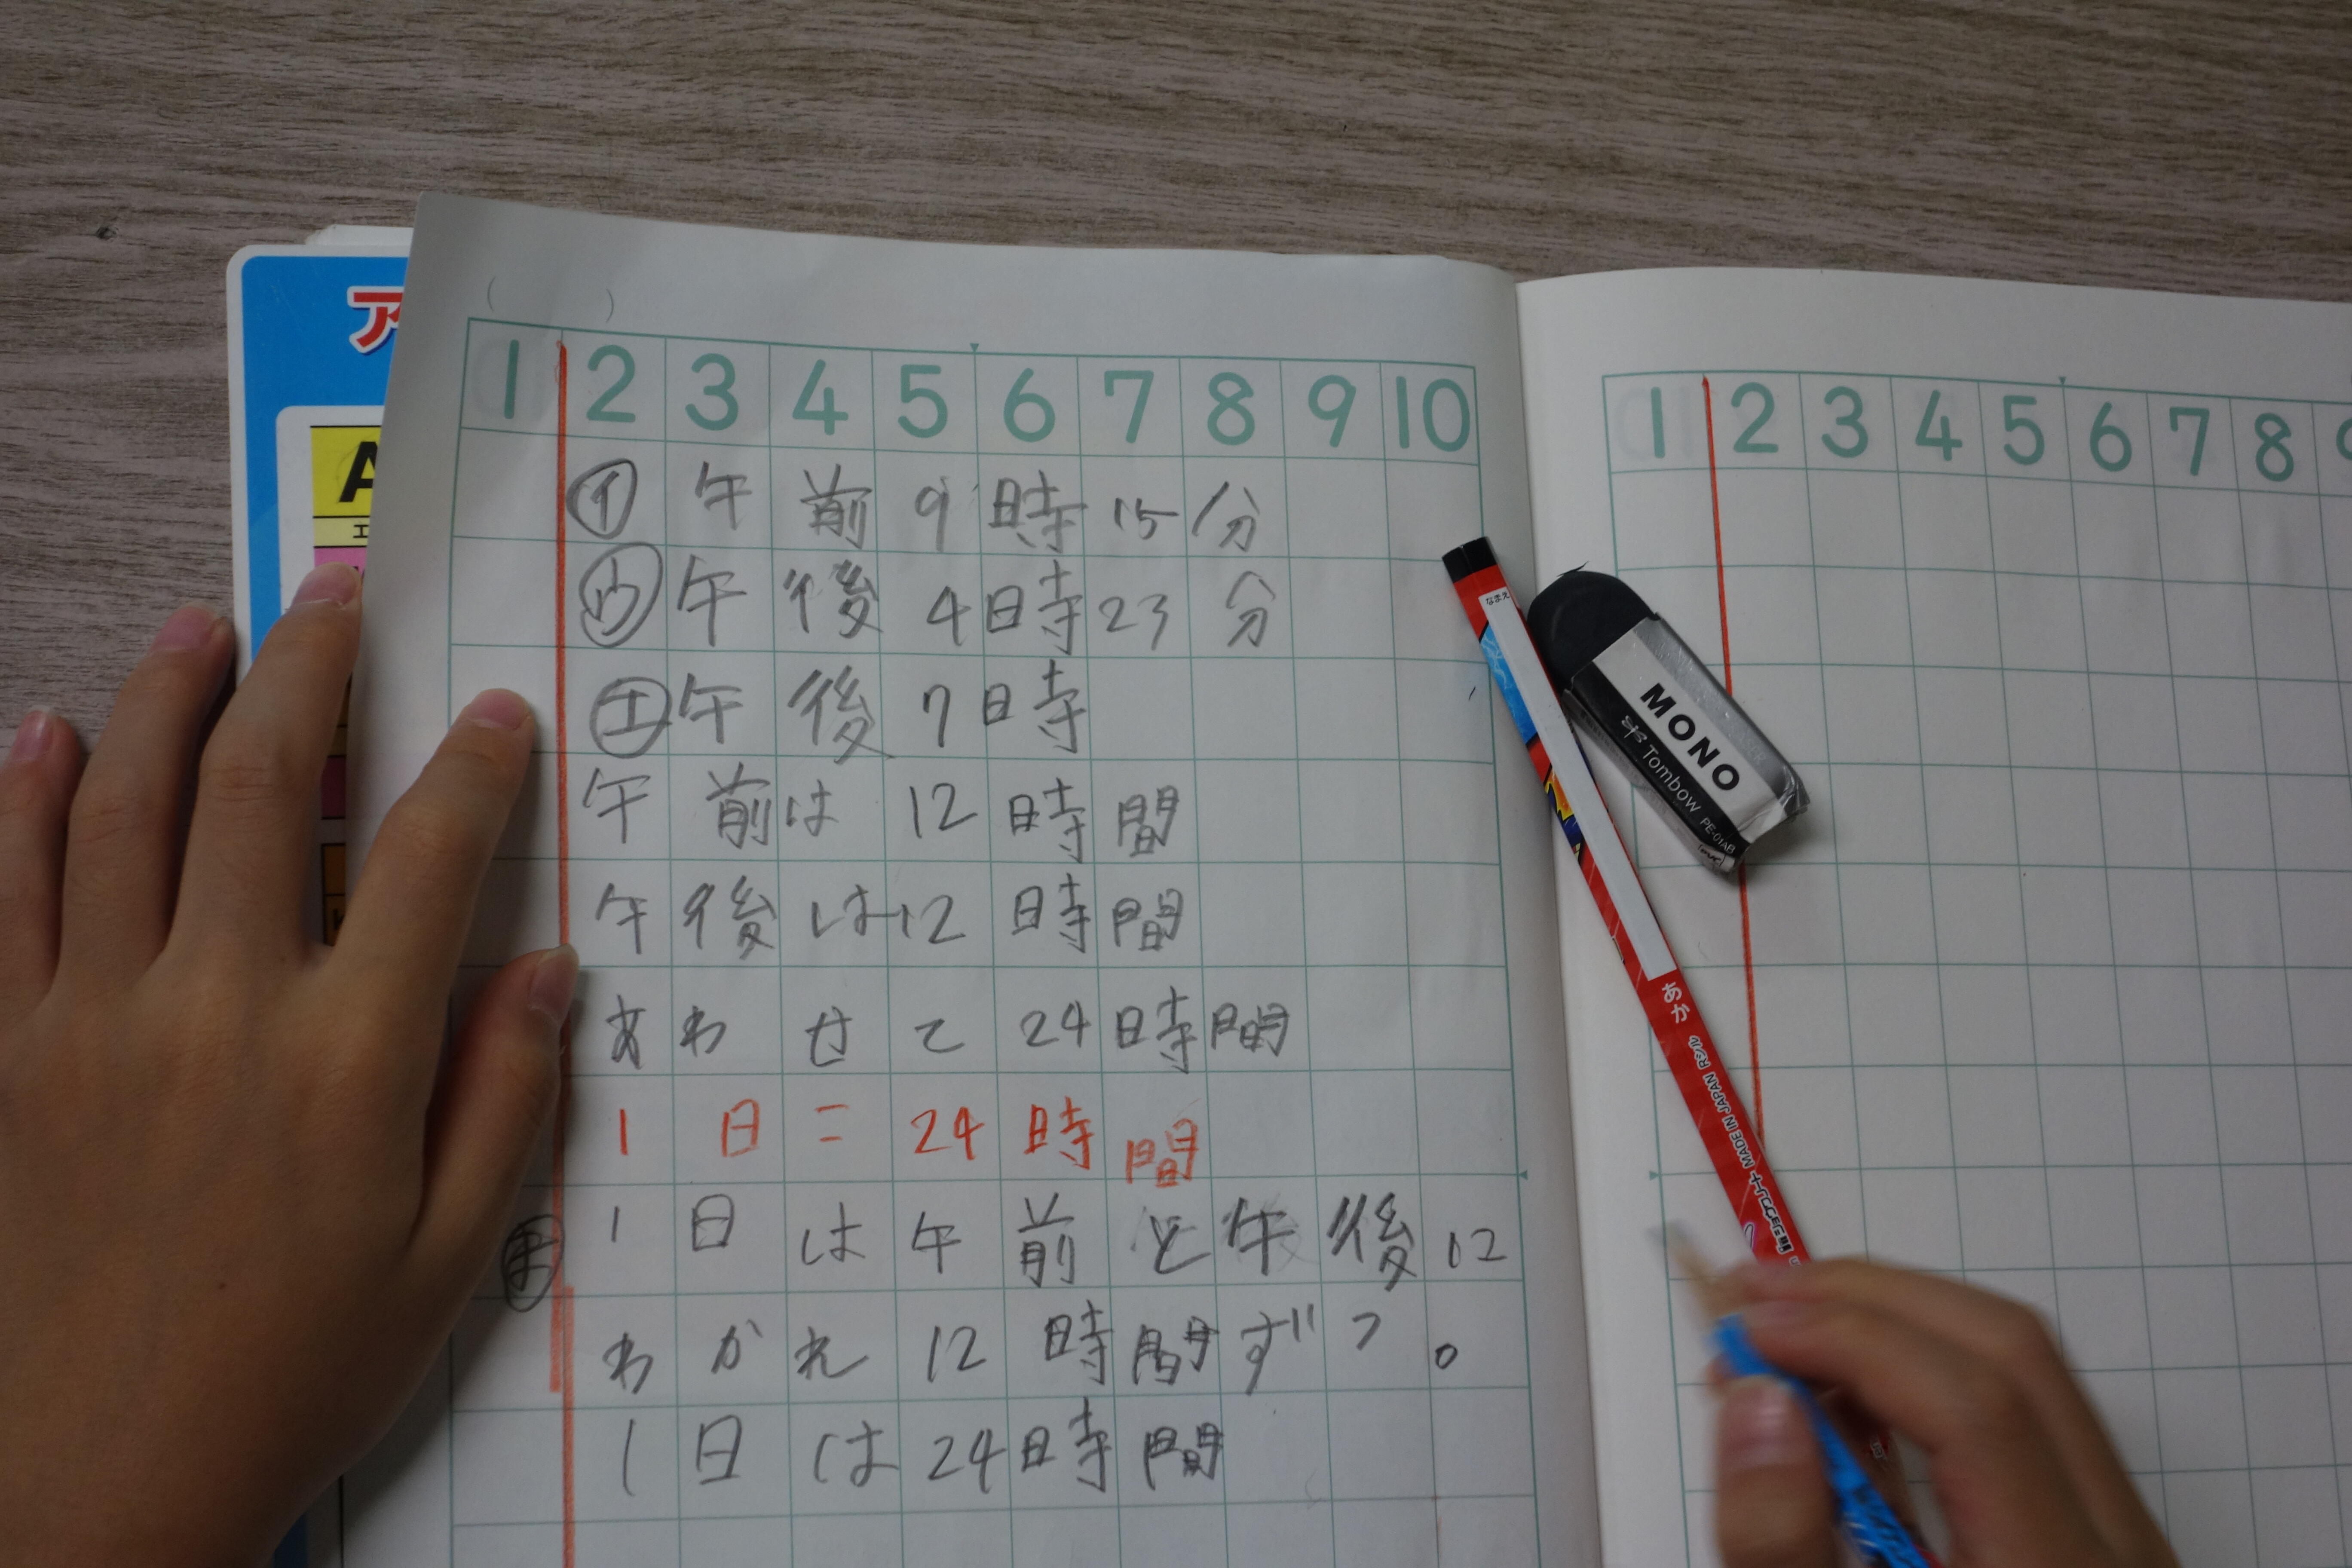 ア
A
エ
1 2 3 4 5 6 7 8 9 10
㋑ 午前9時15分
㋒ 午後4時23分
㋓ 午後7時
午前は12時間
午後は12時間
あわせて24時間
1日=24時間
1日は午前と午後に
わかれ12時間ずつ。
1日は24時間
1 2 3 4 5 6 7 8
なまえ
あか
MADE IN JAPAN
MONO
Tombow PE-01AB